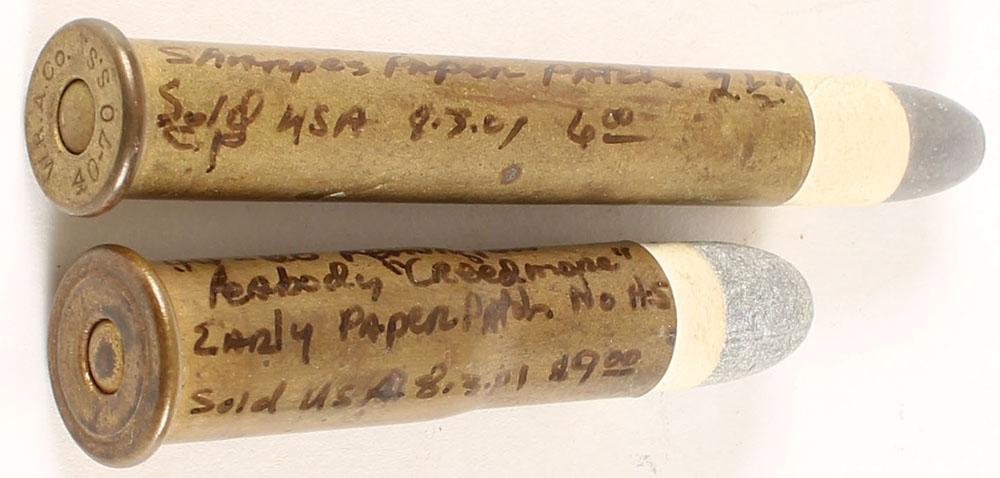 W.R.A.CO. S.S 40-70
SHARPES PAPER PATCH 2 1/2"
Sold USA 9.3.01 6 00
CP
Peabody "Creedmore"
EARLY PAPER Patch No H.S
Sold USA 8.3.01 29 00